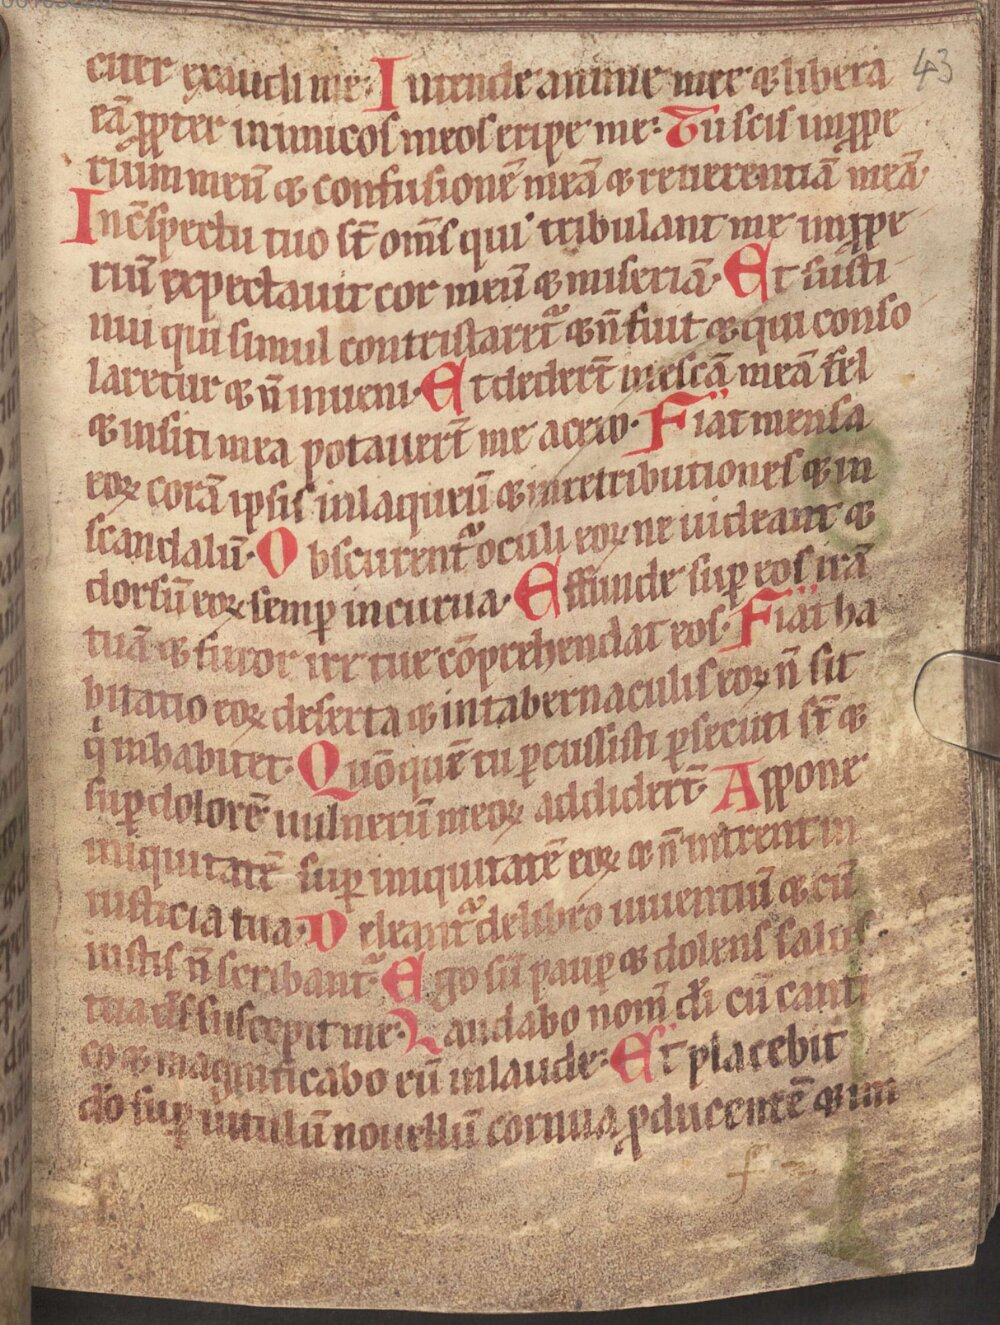 43
citer exaudi me· Intende anime mee & libera
eā ꝓpter inimicos meos eripe me· Tu scis inꝓpe
rium meū & confusionē meā & reuerentiā meā·
In c̄spectu tuo st̄ om̄s qui tribulant me inꝓpe
riū expectauit cor meū & miseriā· Et susti
nui qui simul contristaret᷑ & n̄ fuit & qui conso
laretur & n̄ inueni· Et dedert̄ in escā meā fel
& in siti mea potauert̄ me aceto· Fiat mensa
eoꝝ corā ipsis in laqueū & in retributiones & in
scandalū· Obscurent᷑ oculi eoꝝ ne uideant &
dorsū eoꝝ semꝑ incurua· Effunde suꝑ eos irā
tuā & furor ire tue cōprehendat eos· Fiat ha
bitatio eoꝝ deserta & in tabernaculis eoꝝ n̄ sit
q̇ inhabitet· Quō quē tu ꝑcussisti ꝑsecuti st̄ &
suꝑ dolorē uulnerū meoꝝ addidert̄· Appone
iniquitatē suꝑ iniquitatē eoꝝ & n̄ intrent in
iusticia tua· Deleant᷑ de libro uiuentiū & cū
iustis n̄ scribant᷑· Ego sū pauꝑ & dolens salus
tua ds̄ suscepit me· Laudabo nom̄ di̅ cū canti
co & magnificabo eū in laude· Et placebit
dō suꝑ uitulū nouellū cornua ꝓducentē & un